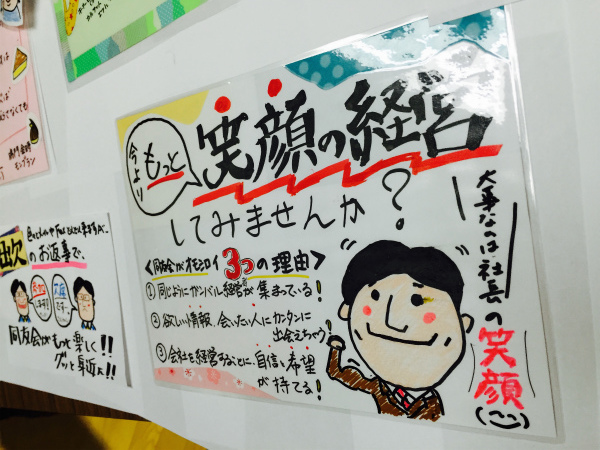 今より
もっと
笑顔の経営
してみませんか?
<同友会がオモシロイ3つの理由>
① 同じようにガンバル経営者が集まっている!
② 欲しい情報、会いたい人にカンタンに
出会えちゃう!
③ 会社を経営することに、自信と希望
が持てる!
大事なのは社長の
笑顔
出欠
のお返事で、
同友会がもっと楽しく!!
グッと身近に!!
モンブラン